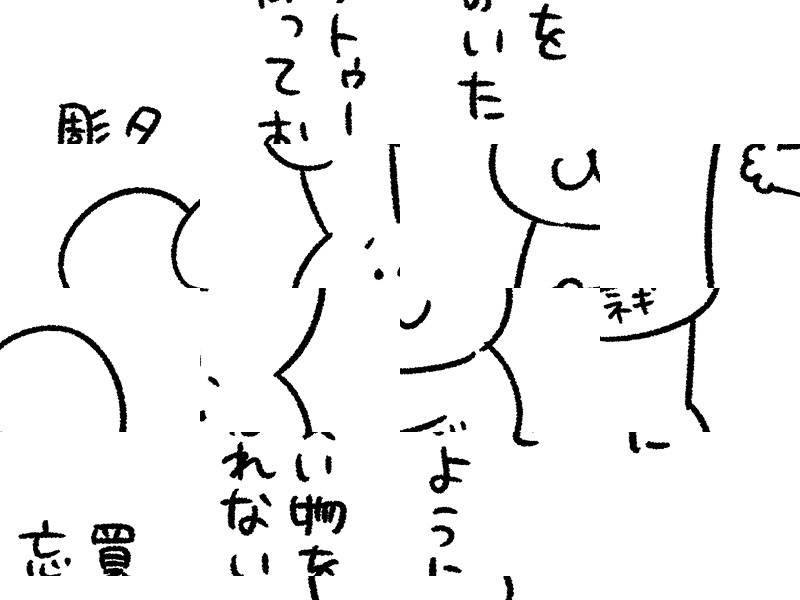 を
いた
トゥー
ってお
タ
彫
ネギ
ように
い物を
れない
買
忘